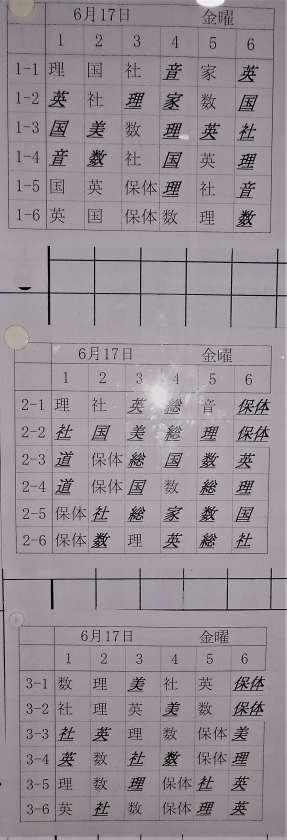 6月17日 金曜
1 2 3 4 5 6
1-1 理 国 社 音 家 英
1-2 英 社 理 家 数 国
1-3 国 美 数 理 英 社
1-4 音 数 社 国 英 理
1-5 国 英 保体 理 社 音
1-6 英 国 保体 数 理 数
6月17日 金曜
1 2 3 4 5 6
2-1 理 社 英 総 音 保体
2-2 社 国 美 総 理 保体
2-3 道 保体 総 国 数 英
2-4 道 保体 国 数 総 理
2-5 保体 社 総 家 数 国
2-6 保体 数 理 英 総 社
6月17日 金曜
1 2 3 4 5 6
3-1 数 理 美 社 英 保体
3-2 社 理 英 美 数 保体
3-3 社 英 理 数 保体 美
3-4 英 数 社 数 保体 理
3-5 理 数 理 保体 社 英
3-6 英 社 数 保体 理 英